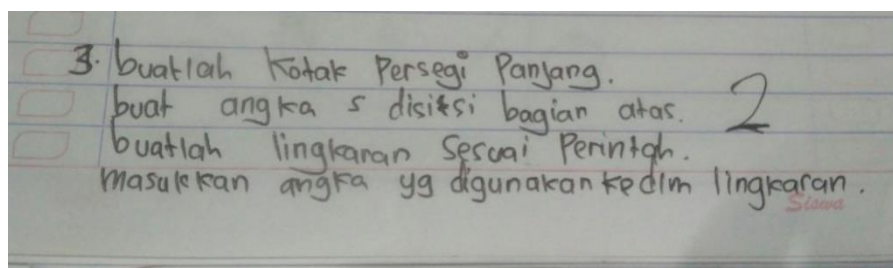 3. buatlah Kotak Persegi Panjang.
buat angka s disitsi bagian atas. 2
buatlah lingkaran Sesuai Perintah.
masukkan angka yg digunakan kedlm lingkaran.
Siswa